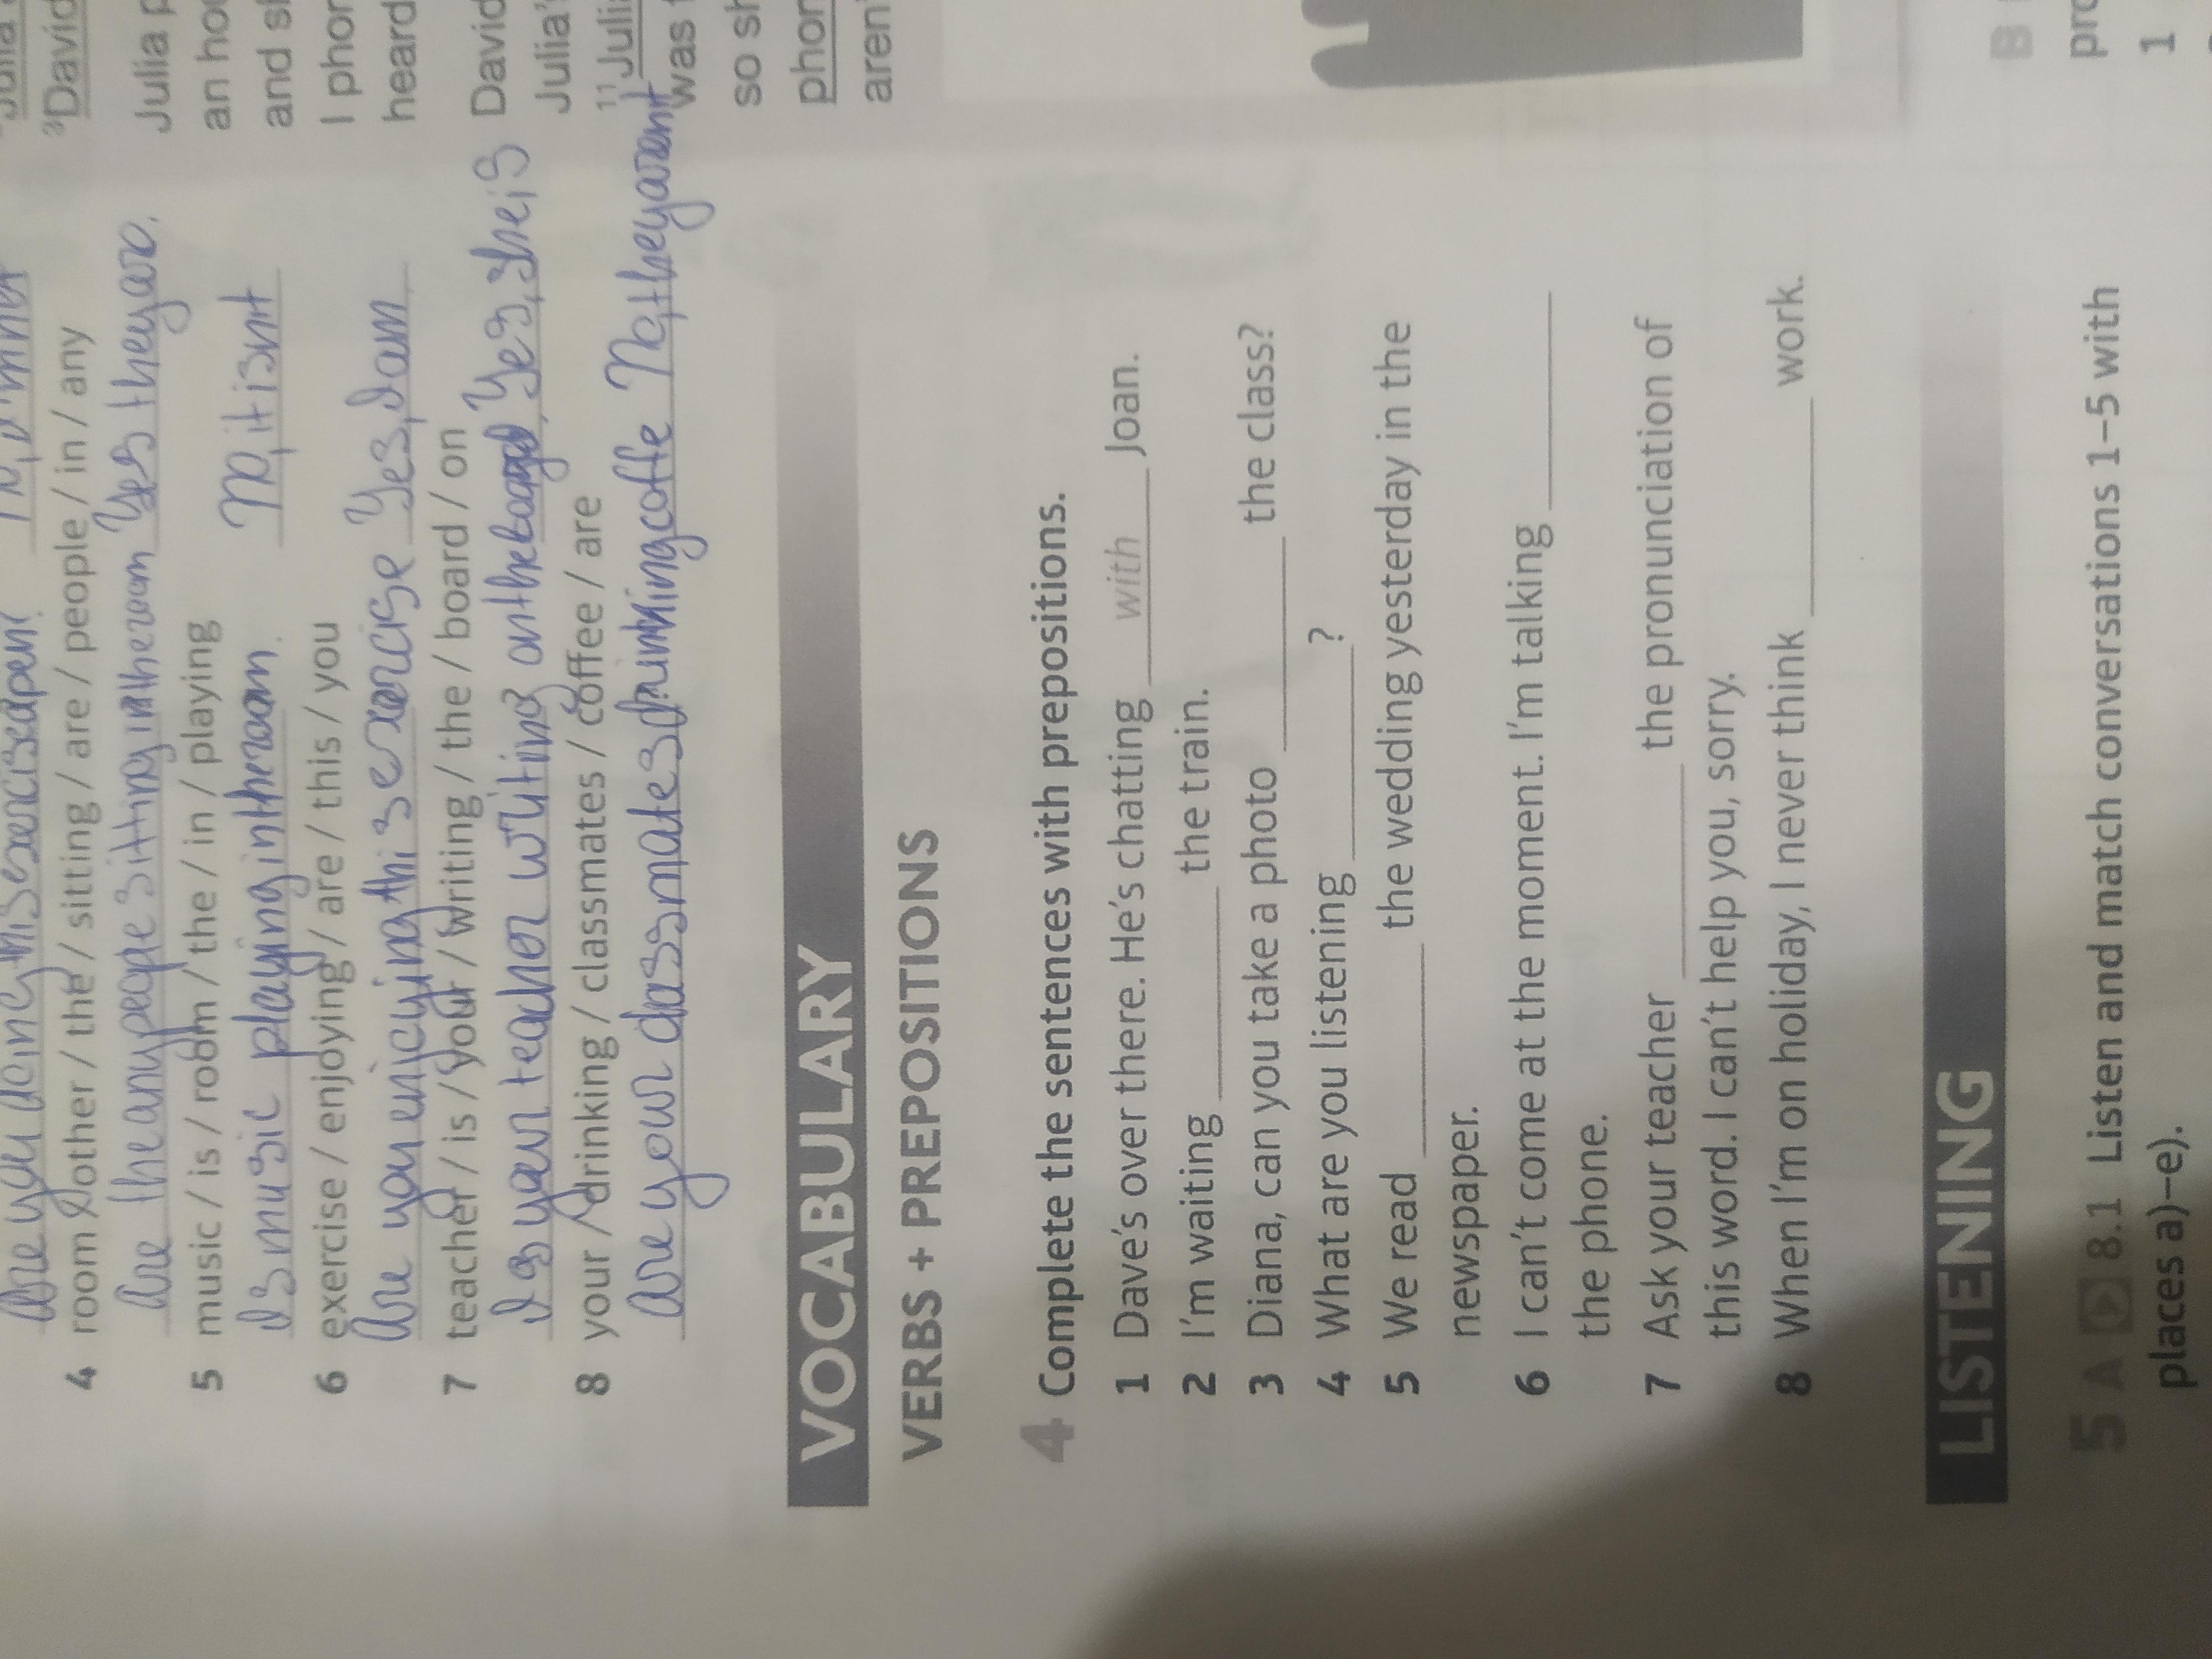 4 room / other / the / sitting / are / people / in / any
Are the any people sitting in the room Yes they are.
5 music / is / room / the / in / playing
Is music playing in the room. No, it isnt
6 exercise / enjoying / are / this / you
Are you enjoying this exercise Yes, I am
7 teacher / is / your / writing / the / board / on
Is your teacher writing on the board Yes, she is
8 your / drinking / classmates / coffee / are
Are your classmates drinking coffe No, they arent
VOCABULARY
VERBS + PREPOSITIONS
4 Complete the sentences with prepositions.
1 Dave's over there. He's chatting with Joan.
2 I'm waiting the train.
3 Diana, can you take a photo the class?
4 What are you listening ?
5 We read the wedding yesterday in the
newspaper.
6 I can't come at the moment. I'm talking
the phone.
7 Ask your teacher the pronunciation of
this word. I can't help you, sorry.
8 When I'm on holiday, I never think work.
LISTENING
5 A 8.1 Listen and match conversations 1–5 with
places a)–e).
3 David
Julia
an
and
I
heard
David
Julia'
11
was
so
are
B
1